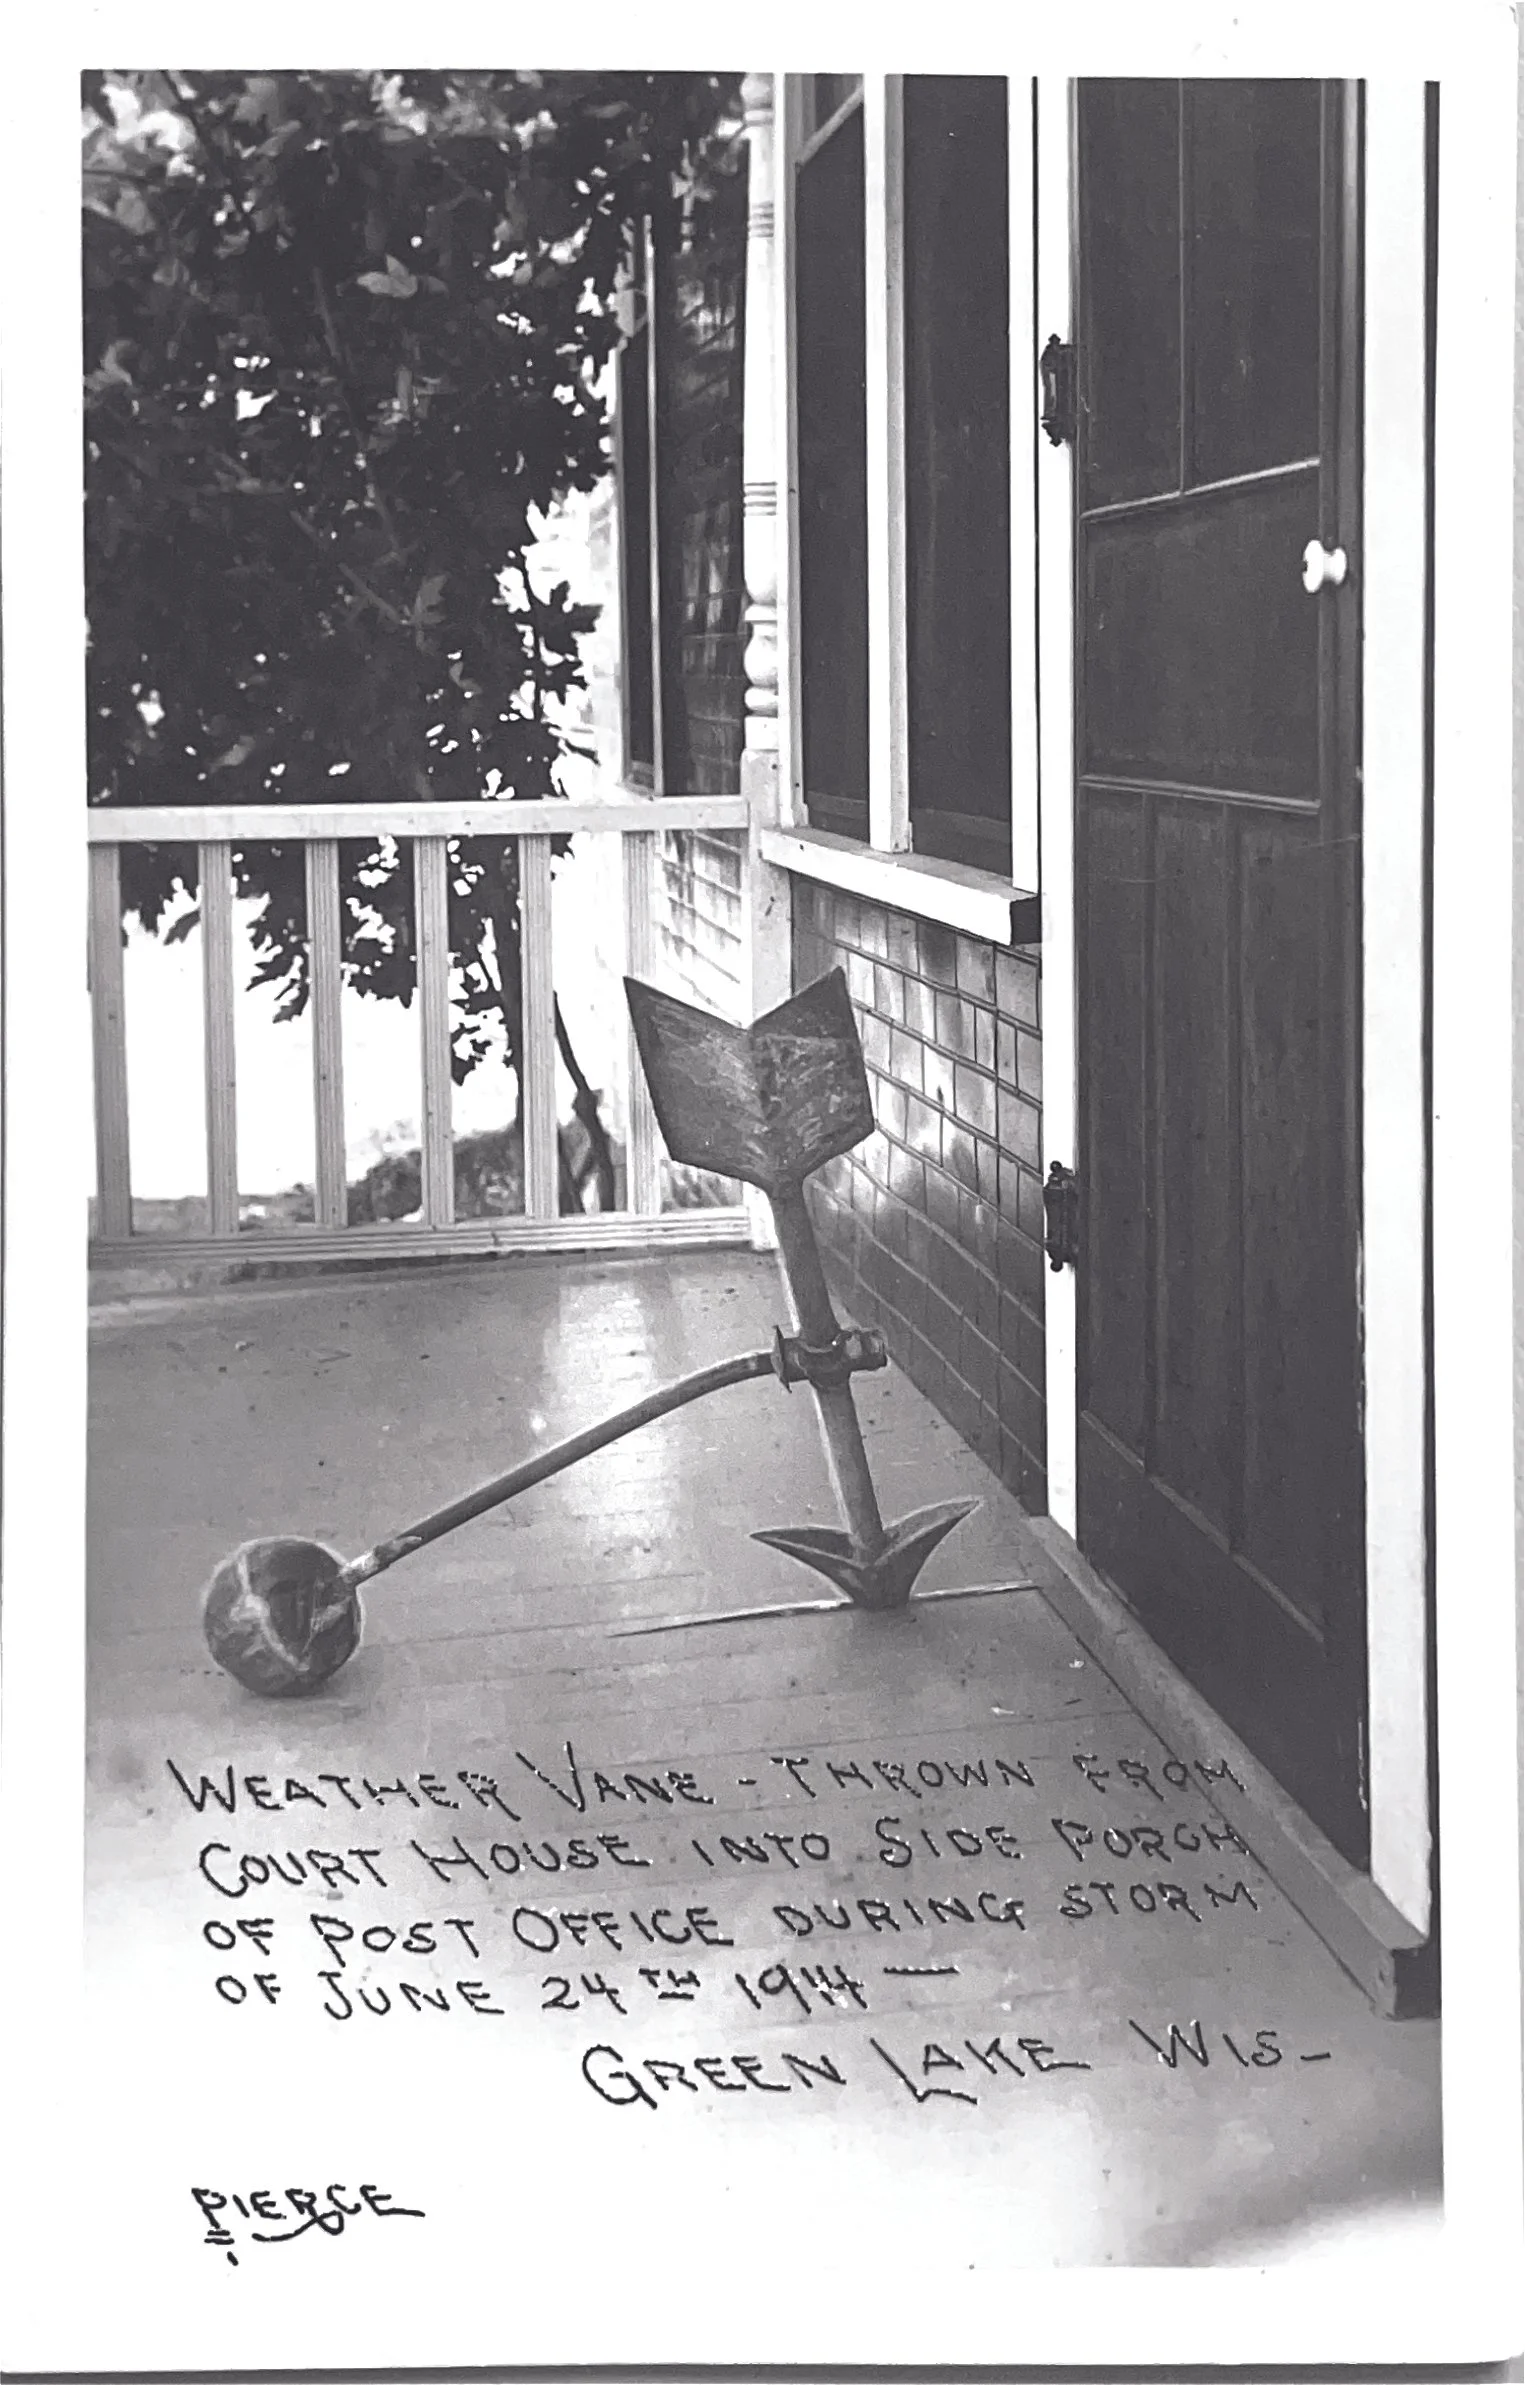 WEATHER VANE - THROWN FROM
COURT HOUSE INTO SIDE PORCH
OF POST OFFICE DURING STORM
OF JUNE 24TH 1914 —
GREEN LAKE WIS -
PIERCE